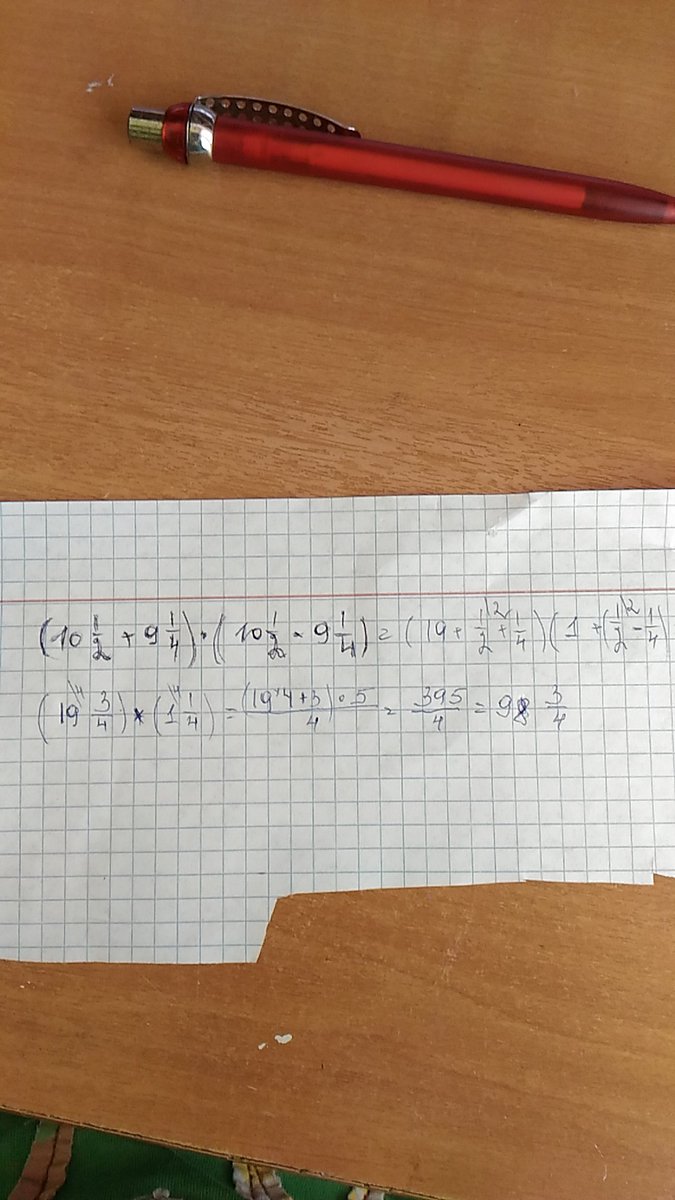 (10 1/2 + 9 1/4) · (10 1/2 - 9 1/4) = (19 + 1/2\2 + 1/4)(1 + (1/2\2 - 1/4)
(19\4 3/4) * (1\4 1/4) = (19·4+3)·5/4 = 395/4 = 98 3/4